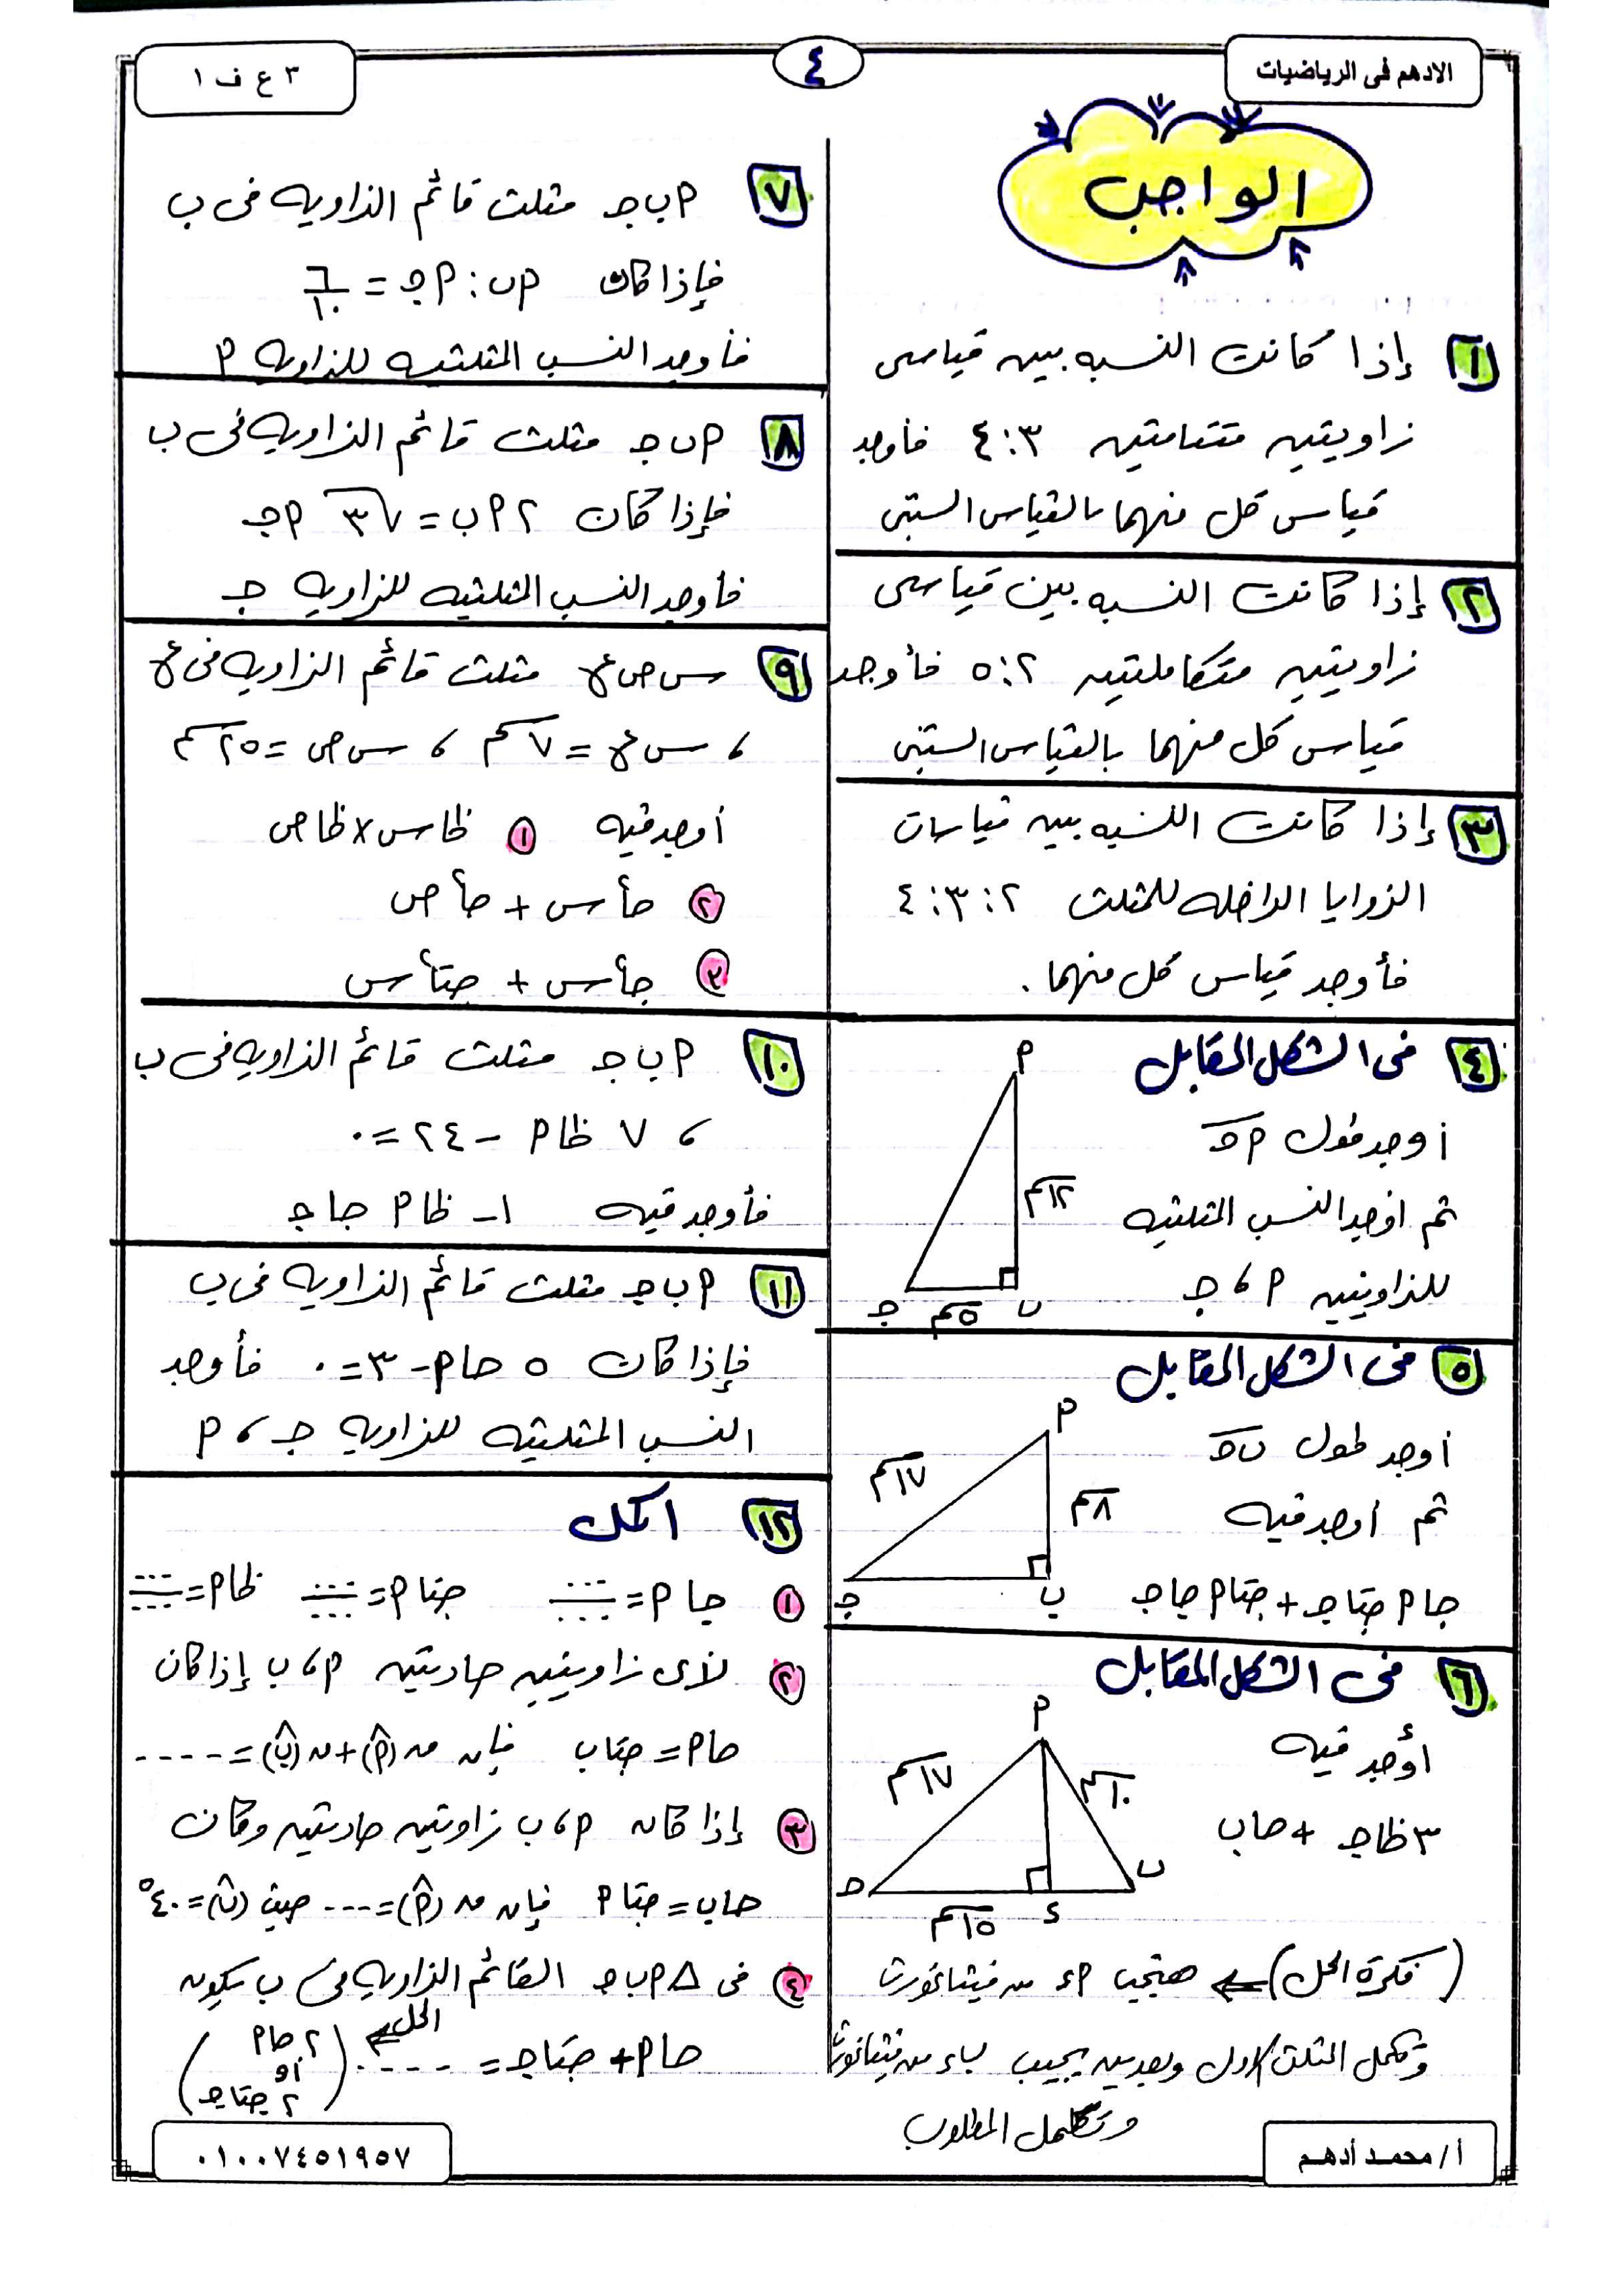 الادهم فى الرياضيات
٤
٣ ع ف ١
الواجب
١ إذا كانت النسبه بين قياسى
زاويتين متتامتين ٣:٤ فأوجد
قياس كل منهما بالقياس الستينى
٢ إذا كانت النسبه بين قياسى
زاويتين متكاملتين ٢:٥ فأوجد
قياس كل منهما بالقياس الستينى
٣ إذا كانت النسبه بين قياسات
الزوايا الداخله للمثلث ٢:٣:٤
فأوجد قياس كل منهما.
٤ فى الشكل المقابل
أوجد طول أج
ثم اوجد النسب المثلثيه
للزاويتين أ ، ج
أ
١٢سم
ج ٥سم ب
٥ فى الشكل المقابل
أوجد طول ب ج
ثم أوجد قيمه
جا أ جتا ج + جتا أ جا ج
أ
١٧سم ٨سم
ج ب
٦ فى الشكل المقابل
أوجد قيمه
٣ ظا ج + جا ب
أ
١٧سم ١٠سم
ج ب
١٥سم ء
(فكرة الحل) ⇐ هتجيب أء من فيثاغورث
وتكمل المثلث الاول وبعدين تجيب ب ء من فيثاغورث
وتكمل المطلوب
٧ أ ب ج مثلث قائم الزاويه فى ب
فإذا كان أب : أج = ٦/١٠
فأوجد النسب المثلثيه للزاويه أ
٨ أ ب ج مثلث قائم الزاويه فى ب
فإذا كان ٢ أ ب = √٣ أ ج
فأوجد النسب المثلثيه للزاويه ج
٩ س ص ع مثلث قائم الزاويه فى ع
، س ع = ٧سم ، س ص = ٢٥سم
أوجد قيمه ١ ظا س × ظا ص
٢ جا٢ س + جا٢ ص
٣ جا٢ س + جتا٢ س
١٠ أ ب ج مثلث قائم الزاويه فى ب
، ٧ ظا أ - ٢٤ = ٠
فأوجد قيمه ١ - ظا أ جا ج
١١ أ ب ج مثلث قائم الزاويه فى ب
فإذا كان ٥ جا أ - ٣ = ٠ فأوجد
النسب المثلثيه للزاويه ج ، أ
١٢ اكمل
١ جا أ = ...... جتا أ = ...... ظا أ = ......
٢ لأى زاويتين حادتين أ ، ب إذا كان
جا أ = جتا ب فإن ق(أ^) + ق(ب^) = ----
٣ إذا كان أ ، ب زاويتين حادتين وكان
جا ب = جتا أ فإن ق(أ^) = --- حيث (ب^) = ٤٠°
٤ فى ∆ أ ب ج القائم الزاويه فى ب يكون
جا أ + جتا ج = ---- الحل ⇐ (٢ جا أ
أو
٢ جتا ج)
أ/ محمد أدهم
٠١٠٠٧٤٥١٩٥٧